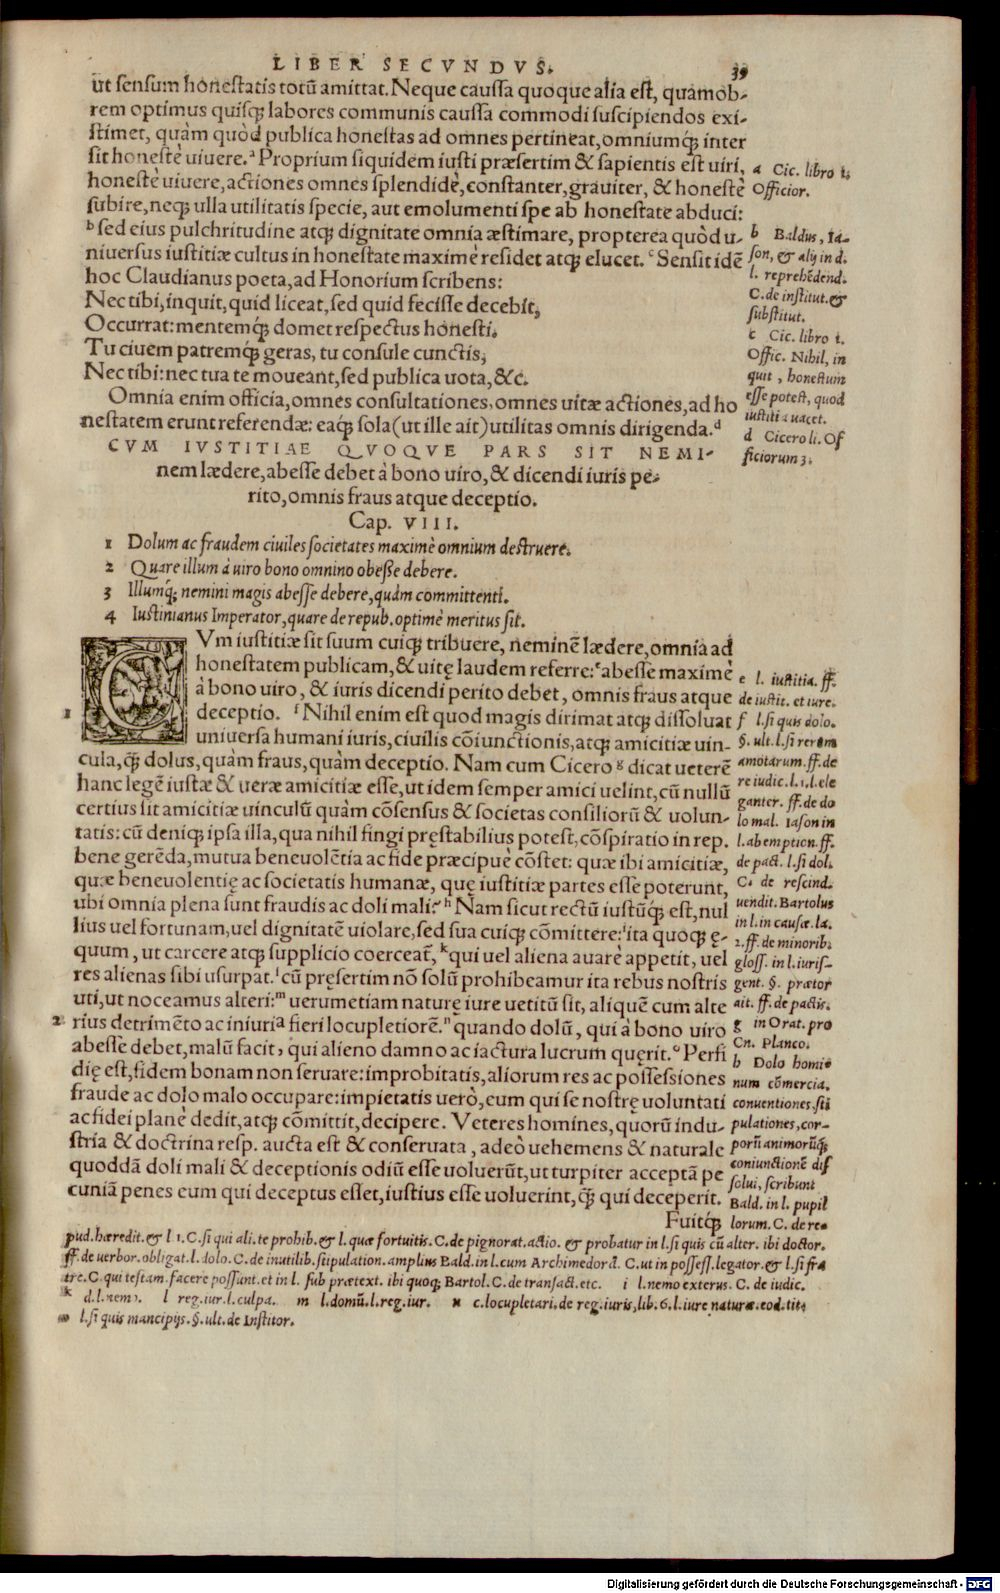 LIBER SECVNDVS. 39
ut sensum honestatis totũ amittat. Neque caussa quoque alia est, quamob-
rem optimus quisq; labores communis caussa commodi suscipiendos exi-
stimet, quàm quòd publica honestas ad omnes pertineat, omniumq́; inter
sit honestè uiuere. ᵃ Proprium siquidem iusti præsertim & sapientis est uiri,
honestè uiuere, actiones omnes splendidè, constanter, grauiter, & honestè
subire, neq; ulla utilitatis specie, aut emolumenti spe ab honestate abduci:
ᵇ sed eius pulchritudine atq; dignitate omnia æstimare, propterea quòd u-
niuersus iustitiæ cultus in honestate maximè residet atq; elucet. ᶜ Sensit idẽ
hoc Claudianus poeta, ad Honorium scribens:
Nec tibi, inquit, quid liceat, sed quid fecisse decebit,
Occurrat: mentemq́; domet respectus honesti.
Tu ciuem patremq́; geras, tu consule cunctis,
Nec tibi: nec tua te moueant, sed publica uota, &c.
Omnia enim officia, omnes consultationes, omnes uitæ actiones, ad ho
nestatem erunt referendæ: eaq́; sola (ut ille ait) utilitas omnis dirigenda. ᵈ
a Cic. libro 1.
Officior.
b Baldus, Ia-
son, & alij in d.
l. reprehẽdend.
C. de institut. &
substitut.
c Cic. libro 1.
Offic. Nihil, in
quit, honestum
esse potest, quod
iustitia uacet.
d Cicero li. Of
ficiorum 3.
CVM IVSTITIAE QVOQVE PARS SIT NEMI-
nem lædere, abesse debet à bono uiro, & dicendi iuris pe-
rito, omnis fraus atque deceptio.
Cap. VIII.
1 Dolum ac fraudem ciuiles societates maximè omnium destruere.
2 Quare illum à uiro bono omnino obesse debere.
3 Illumq́; nemini magis abesse debere, quàm committenti.
4 Iustinianus Imperator, quare de repub. optimè meritus sit.
CVm iustitiæ sit suum cuiq; tribuere, neminẽ lædere, omnia ad
honestatem publicam, & uitę laudem referre: ᵉ abesse maximè
à bono uiro, & iuris dicendi perito debet, omnis fraus atque
1 deceptio. ᶠ Nihil enim est quod magis dirimat atq; dissoluat
uniuersa humani iuris, ciuilis cõiunctionis, atq; amicitiæ uin-
cula, q̃; dolus, quàm fraus, quàm deceptio. Nam cum Cicero ᵍ dicat ueterẽ
hanc legẽ iustæ & ueræ amicitiæ esse, ut idem semper amici uelint, cũ nullũ
certius sit amicitiæ uinculũ quàm cõsensus & societas consiliorũ & uolun-
tatis: cũ deniq; ipsa illa, qua nihil fingi pręstabilius potest, cõspiratio in rep.
bene gerẽda, mutua beneuolẽtia ac fide præcipuè cõstet: quæ ibi amicitiæ,
quæ beneuolentię ac societatis humanæ, quę iustitiæ partes esse poterunt,
ubi omnia plena sunt fraudis ac doli mali? ʰ Nam sicut rectũ iustũq́; est, nul
lius uel fortunam, uel dignitatẽ uiolare, sed sua cuiq; cõmittere: ⁱ ita quoq; ę-
quum, ut carcere atq; supplicio coerceat̃, ᵏ qui uel aliena auarè appetit, uel
res alienas sibi usurpat. ˡ cũ pręsertim nõ solũ prohibeamur ita rebus nostris
uti, ut noceamus alteri: ᵐ uerumetiam naturę iure uetitũ sit, aliquẽ cum alte
2 rius detrimẽto ac iniuria fieri locupletiorẽ. ⁿ quando dolũ, qui à bono uiro
abesse debet, malũ facit, qui alieno damno ac iactura lucrum quęrit. ᵒ Perfi
dię est, fidem bonam non seruare: improbitatis, aliorum res ac possessiones
fraude ac dolo malo occupare: impietatis uerò, eum qui se nostrę uoluntati
ac fidei planè dedit, atq; cõmittit, decipere. Veteres homines, quorũ indu-
stria & doctrina resp. aucta est & conseruata, adeò uehemens & naturale
quoddã doli mali & deceptionis odiũ esse uoluerũt, ut turpiter acceptã pe
cuniã penes eum qui deceptus esset, iustius esse uoluerint, q̃; qui deceperit.
Fuitq́;
e l. iustitia. ff.
de iustit. et iure.
f l. si quis dolo.
§. ult. l. si rerum
amotarum. ff. de
re iudic. l. 1. l. ele
ganter. ff. de do
lo mal. Iason in
l. ab emption. ff.
de pact. l. si dol.
C. de rescind.
uendit. Bartolus
in l. in causæ. la.
2. ff. de minorib.
gloss. in l. iuris-
gent. §. prætor
ait. ff. de pactis.
g in Orat. pro
Cn. Planco.
h Dolo homi-
num cõmercia,
conuentiones, sti
pulationes, cor-
porũ animorũq́;
coniunctionẽ dis
solui, scribunt
Bald. in l. pupil
lorum. C. de re-
pud. hæredit. & l 1. C. si qui ali. te prohib. & l. quæ fortuitis. C. de pignorat. actio. & probatur in l. si quis cũ alter. ibi doctor.
ff. de uerbor. obligat. l. dolo. C. de inutilib. stipulation. amplius Bald. in l. cum Archimedorã. C. ut in possess. legator. & l. si fra
tre. C. qui testam. facere possunt. et in l. sub prætext. ibi quoq; Bartol. C. de transact. etc. i l. nemo exterus. C. de iudic.
k d. l. nem. l reg. iur. l. culpa. m l. domũ. l. reg. iur. n c. locupletari. de reg. iuris, lib. 6. l. iure naturæ. eod. tit.
l. si quis mancipijs. §. ult. de Institor.
Digitalisierung gefördert durch die Deutsche Forschungsgemeinschaft - DFG